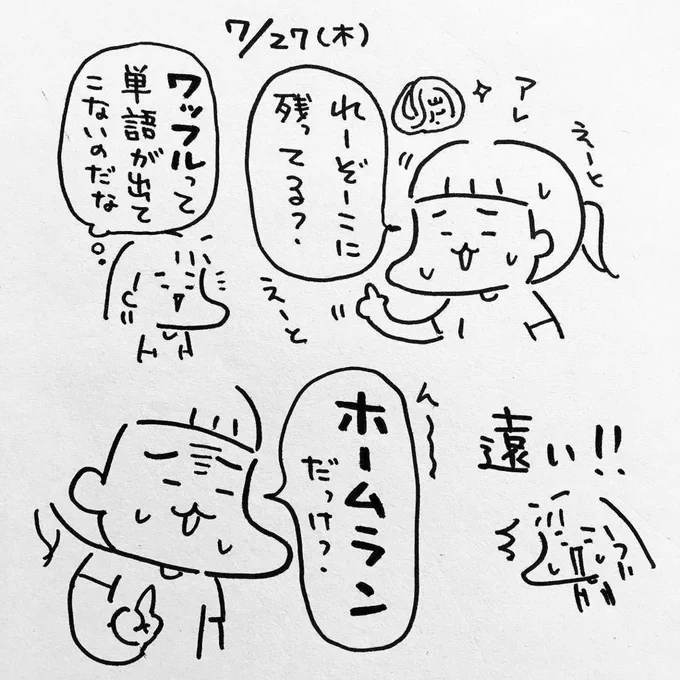 7/27(木)
アレ
えーと
れーぞーこに
残ってる?
えーと
ワッフルって
単語が出て
こないのだな
ん〜〜〜
ホームラン
だっけ?
遠い!!